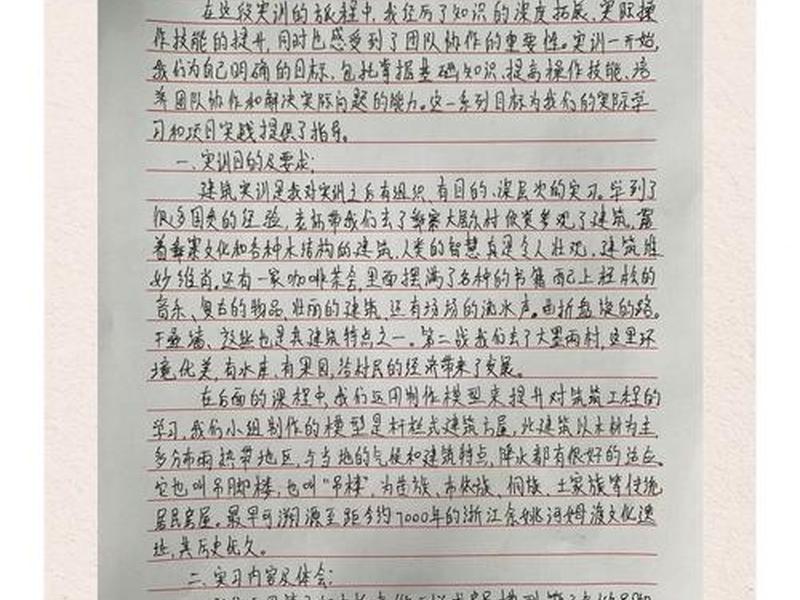 在这段实训的旅程中,我经历了知识的深度拓展、实际操
作技能的提升,同时也感受到了团队协作的重要性。实训一开始,
我们为自己明确的目标,包括掌握基础知识、提高操作技能、培
养团队协作和解决实际问题的能力。这一系列目标为我们的实际学
习和项目实践提供了指导。
一、实训目的及要求:
建筑实训是我对实训主后有组织、有目的、深层次的实习。学到了
很多国类的经验,老师带我们去了大层次村 参观了建筑,
着 文化和各种木结构的建筑,人类的智慧真是令人壮观,建筑维
妙维肖。还有一家咖啡茶会,里面摆满了各种的书籍 配上轻松的
音乐、复古的物品、壮丽的建筑,还有 的流水声。曲折盘旋的路。
干垒墙、这些也是其建筑特点之一。第二战我们去了大墨雨村,这里环
境优美,有水库、有果园,给村民的经济带来了发展。
在后面的课程中,我们运用制作模型来提升对筑筑工程的
学习,我们小组制作的模型是杆栏式建筑房屋,此建筑以木材为主
多分布雨热带地区,与当地的气候和建筑特点,降水都有很好的适应。
它也叫吊脚楼,也叫“吊楼”,为苗族、布依族、侗族、土家族等传统
居民房屋。最早可溯源至距今约7000年的浙江余姚河姆渡文化遗
址,其历史优久。
二、实习内容及体会: